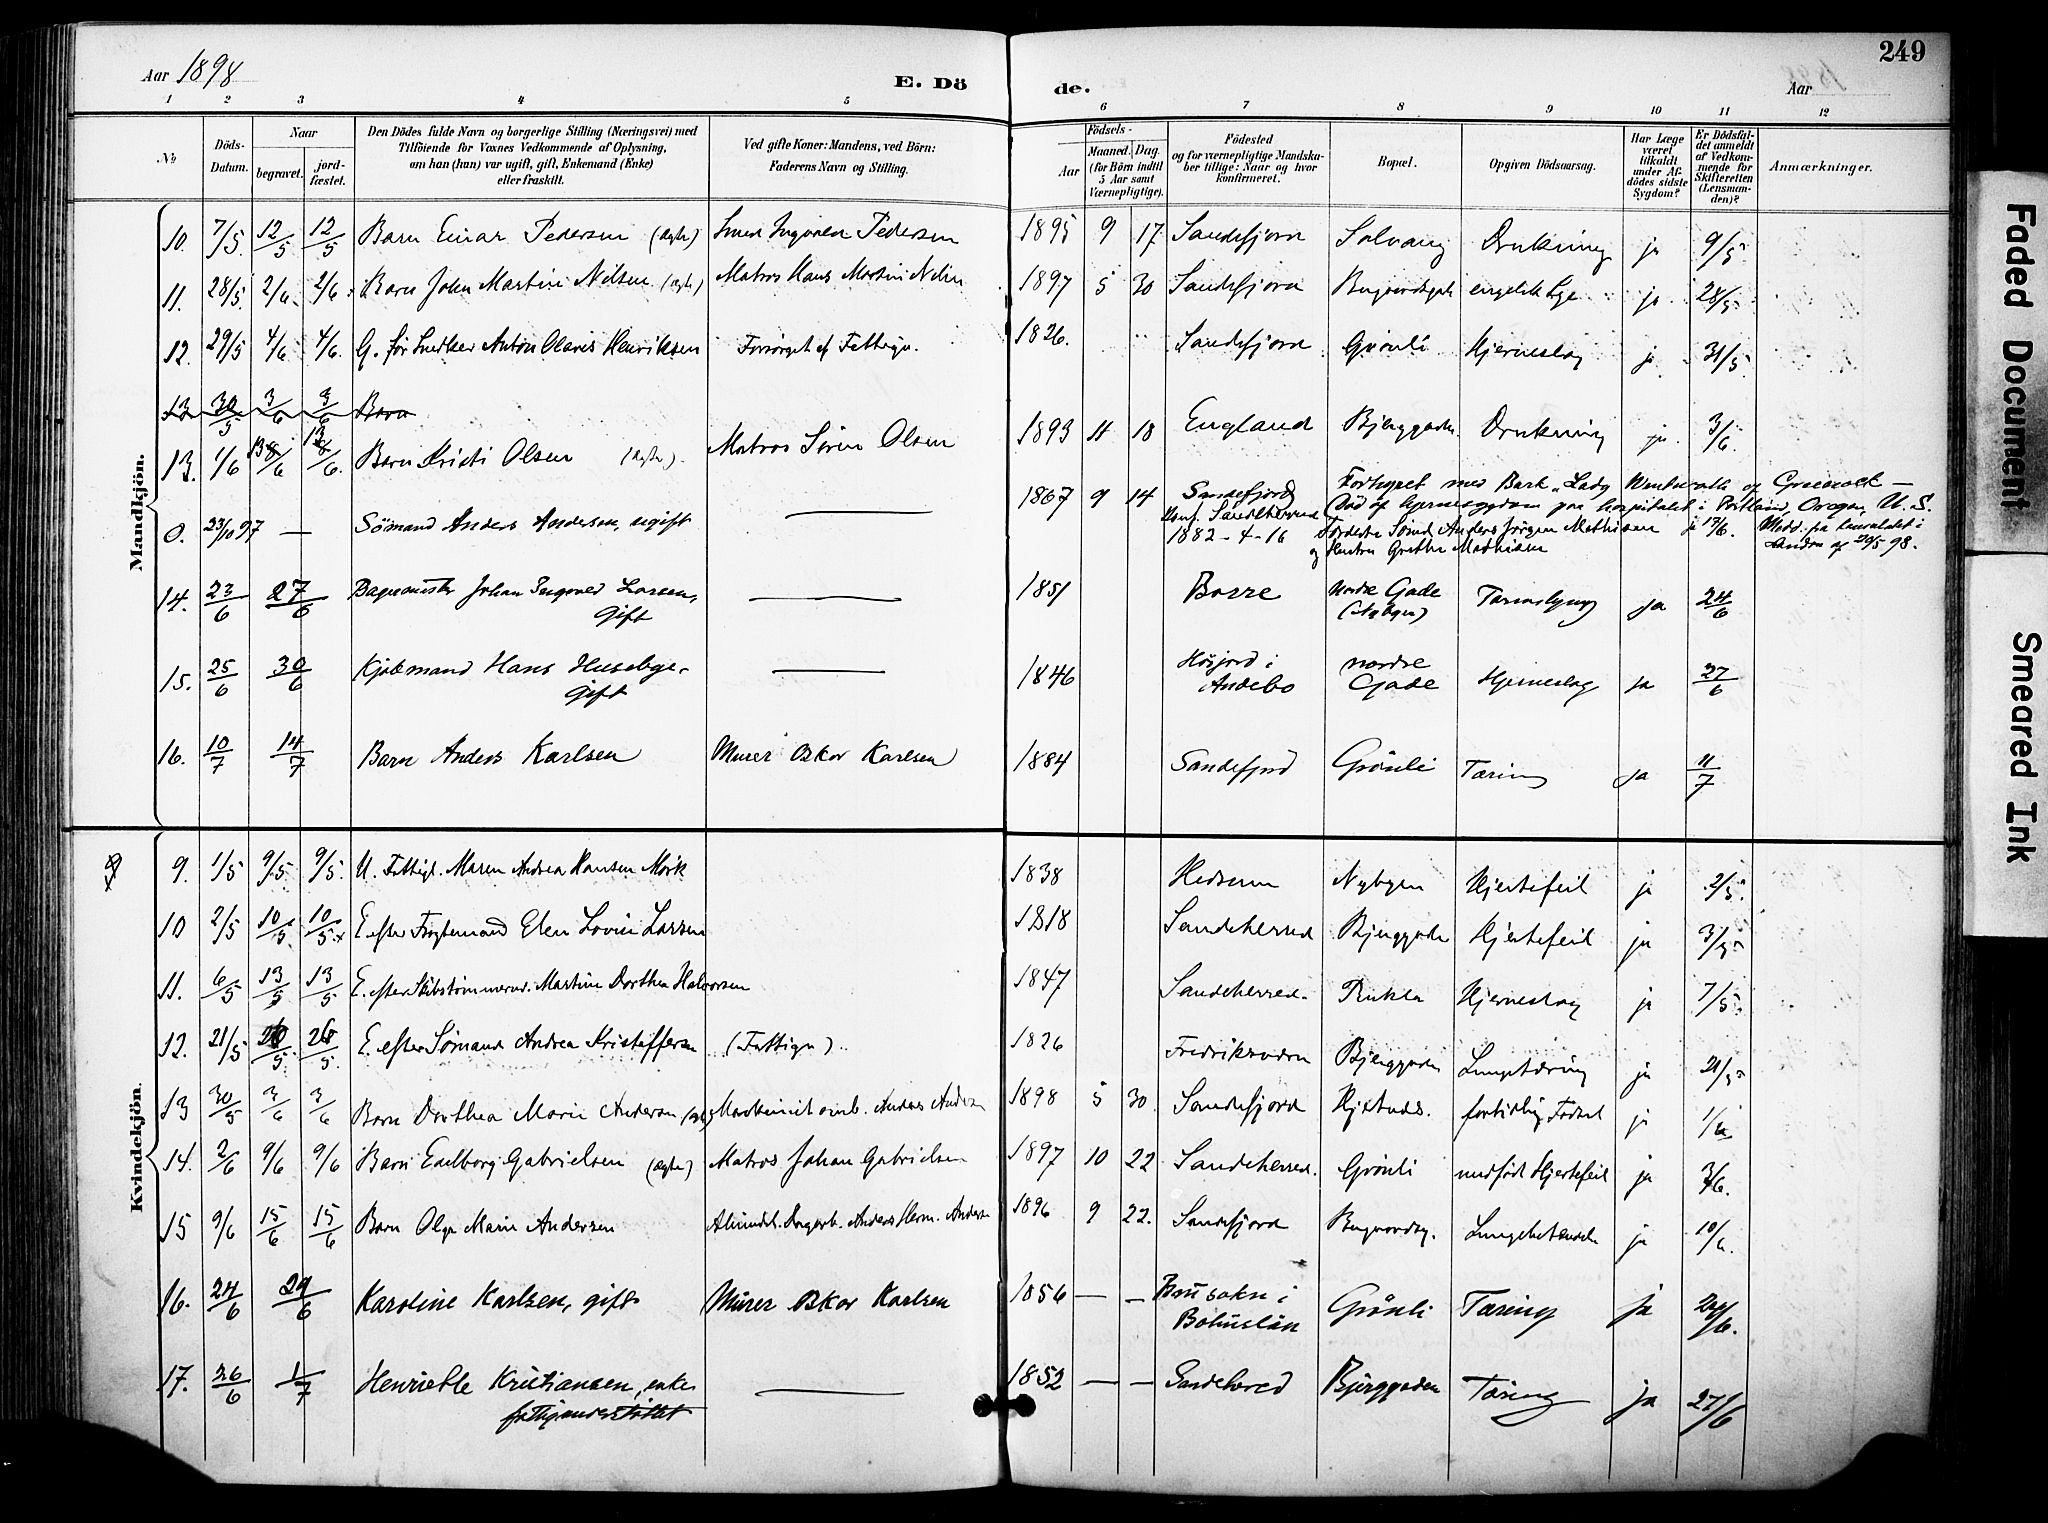 Aar 1898
E. Dö
de.
Aar
249
1 2 3 4 5 6 7 8 9 10 11 12
No
Döds-Datum.
Naar
begravet.
jord-fæstet.
Den Dödes fulde Navn og borgerlige Stilling (Næringsvei) med
Tilföiende for Voxnes Vedkommende af Oplysning,
om han (hun) var ugift, gift, Enkemand (Enke)
eller fraskilt.
Ved gifte Koner: Mandens, ved Börn:
Faderens Navn og Stilling.
Födsels-
Aar
Maaned. Dag.
(for Börn indtil
5 Aar samt
Værnepligtige).
Födested
og for værnepligtige Mandska-
ber tillige: Naar og hvor
konfirmeret.
Bopæl.
Opgiven Dödsaarsag.
Har Læge
været
tilkaldt
under Af-
dödes sidste
Sygdom?
Er Dödsfal-
det anmeldt
af Vedkom-
mende for
Skifteretten
(Lensman-
den)?
Anmærkninger.
Mandkjön.
10. 7/5 12/5 12/5 Barn Einar Pedersen (ægte) Smed Ingvald Pedersen 1895 9 17 Sandefjord Solvang Drukning ja 9/5
11. 28/5 2/6 2/6 Barn John Martin Nilsen (ægte) Matros Hans Martin Nilsen 1897 5 30 Sandefjord engelsk Syge ja 28/5
12. 29/5 4/6 4/6. G. før Snedker Anton Olaves Henriksen Forsørget af Fattigv. 1826. Sandefjord Grönli Hjerneslag ja 31/5
13 30/5 3/6 3/6 Barn
13. 1/6 13/6 13/6 Barn Kristi Olsen (ægte) Matros Sören Olsen 1893 11 18 England Bjerggaden Drukning ja 3/6
0. 23/10 97 — Sömand Anders Andersen, ugift — 1867 9 14 Sandefjord
Konf. Sandeherred
1882-4-16
Forhyret med Bark "Lady Wentworth" og Greenock —
Död af hjernesygdom paa hospitalet i Portland, Oregon, U. S.
Forældre Sömd Anders Jörgen Mathisen
og Hustru Grethe Mathisen
ja 17/6. Medd. fra konsulatet i
London af 20/5 98.
14. 23/6 27/6 Bagermester Johan Ingvald Larsen, gift — 1851 Borre Nordre Gade
(Nybyen) Tarmslyng ja 24/6
15. 25/6 30/6 Kjøbmand Hans Husebye, gift — 1846 Høijord i
Andebo Nordre
Gade Hjerneslag ja 27/6
16. 10/7 14/7 Barn Anders Karlsen Murer Oskar Karlsen 1884 Sandefjord Grönli Tæring ja 11/7
Kvindekjön.
9. 1/5 9/5 9/5. U. Fattigl. Maren Andrea Hansen Mörk 1838 Hedrum Nybyen Hjertefeil ja 2/5
10 2/5 10/5 10/5 E. efter Fragtemand Elen Lovise Larsen 1818 Sandeherred Bjerggaden Hjertefeil ja 3/5
11. 6/5 13/5 13/5 E. efter Skibstømmermd. Martine Dorthea Halvorsen 1847 Sandeherred. Pukla Hjerneslag ja 7/5
12. 21/5 26/5 26/5. E. efter Sömand Andrea Kristoffersen (Fattigv) 1826 Fredriksværn Bjerggaden Lungetæring ja 21/5
13 30/5 3/6 3/6 Barn Dorthea Marie Andersen (ægte) Maskinist omb. Anders Andersen 1898 5 30. Sandefjord Hjertnes. fortidlig Födsel ja 1/6
14. 2/6 9/6 9/6 Barn Edelborg Gabrielsen (ægte) Matros Johan Gabrielsen 1897 10 22 Sandeherred. Grönli medfødt Hjertefeil ja 3/6.
15 9/6 15/6 15/6 Barn Olga Marie Andersen Almindel. Dagarb. Anders Herm. Andersen 1896 9 22. Sandefjord Lungebetændelse ja 10/6.
16. 24/6 29/6 Karoline Karlsen, gift Murer Oskar Karlsen 1856 — — i
Bohuslän Grönli Tæring ja 26/6.
17. 26/6 1/7 Henriette Kristiansen, enke
fattigunderstöttet — 1852 — — Sandeherred Bjerggaden Tæring ja 27/6
Faded Document
Smeared Ink